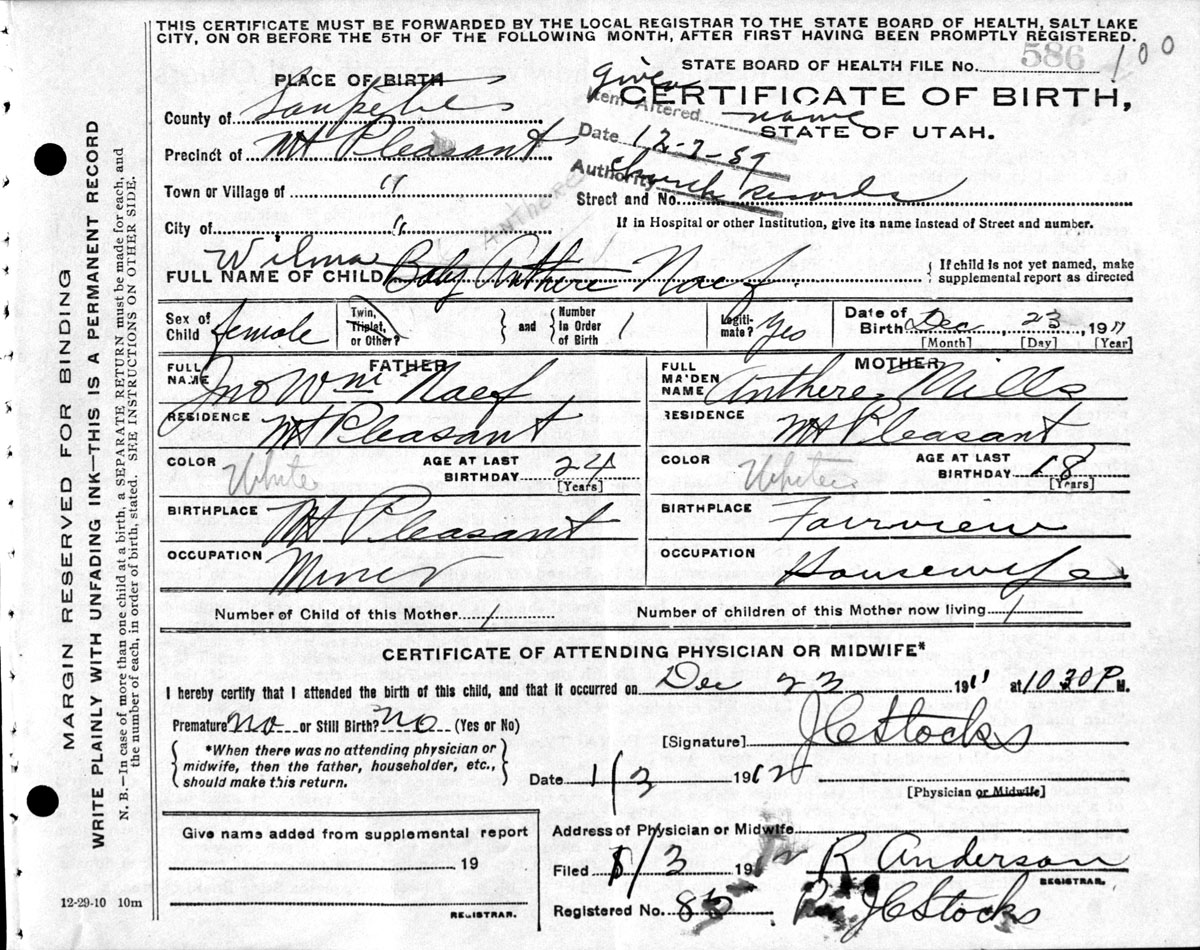 THIS CERTIFICATE MUST BE FORWARDED BY THE LOCAL REGISTRAR TO THE STATE BOARD OF HEALTH, SALT LAKE
CITY, ON OR BEFORE THE 5TH OF THE FOLLOWING MONTH, AFTER FIRST HAVING BEEN PROMPTLY REGISTERED.
STATE BOARD OF HEALTH FILE No. 586 100
PLACE OF BIRTH
given
Item Altered name
CERTIFICATE OF BIRTH,
STATE OF UTAH.
County of Sanpete
Date 12-7-59
Precinct of Mt Pleasant
Authority Church Records
Town or Village of "
Street and No.
City of "
ANTHERE
If in Hospital or other Institution, give its name instead of Street and number.
Wilma
FULL NAME OF CHILD Baby Anthere Naef
{ If child is not yet named, make supplemental report as directed
Sex of Child female
Twin, Triplet, or Other? } and { Number in Order of Birth 1
Legitimate? Yes
Date of Birth Dec, 23 1911
[Month] [Day] [Year]
FATHER
FULL NAME Jno Wm Naef
MOTHER
FULL MAIDEN NAME Anthere Mills
RESIDENCE Mt Pleasant
RESIDENCE Mt Pleasant
COLOR White AGE AT LAST BIRTHDAY 24 [Years]
COLOR White AGE AT LAST BIRTHDAY 18 [Years]
BIRTHPLACE Mt Pleasant
BIRTHPLACE Fairview
OCCUPATION Miner
OCCUPATION Housewife
Number of Child of this Mother 1 Number of children of this Mother now living 1
CERTIFICATE OF ATTENDING PHYSICIAN OR MIDWIFE*
I hereby certify that I attended the birth of this child, and that it occurred on Dec 23 1911 at 10 30 P M.
Premature no or Still Birth? no (Yes or No)
[Signature] J C Stocks
{ *When there was no attending physician or midwife, then the father, householder, etc., should make this return. }
Date 1/3 1912
[Physician or Midwife]
Give name added from supplemental report
19
REGISTRAR.
Address of Physician or Midwife
Filed 1/3 1912 R Anderson
REGISTRAR.
Registered No. 85 J C Stocks
12-29-10 10m
MARGIN RESERVED FOR BINDING
WRITE PLAINLY WITH UNFADING INK—THIS IS A PERMANENT RECORD
N. B.—In case of more than one child at a birth, a SEPARATE RETURN must be made for each, and
the number of each, in order of birth, stated. SEE INSTRUCTIONS ON OTHER SIDE.